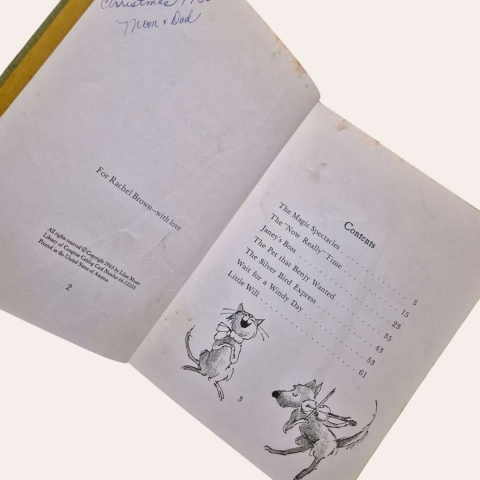 Christmas
Mom & Dad
For Rachel Brown—with love
All rights reserved © Copyright 1965 by Lilian Moore
Library of Congress Catalog Card Number 65-22333
Printed in the United States of America
2
Contents
The Magic Spectacles 5
The "Now Really" Time 15
Janey's Boss 23
The Pet that Benjy Wanted 35
The Silver Bird Express 43
Wait for a Windy Day 53
Little Will 61
3